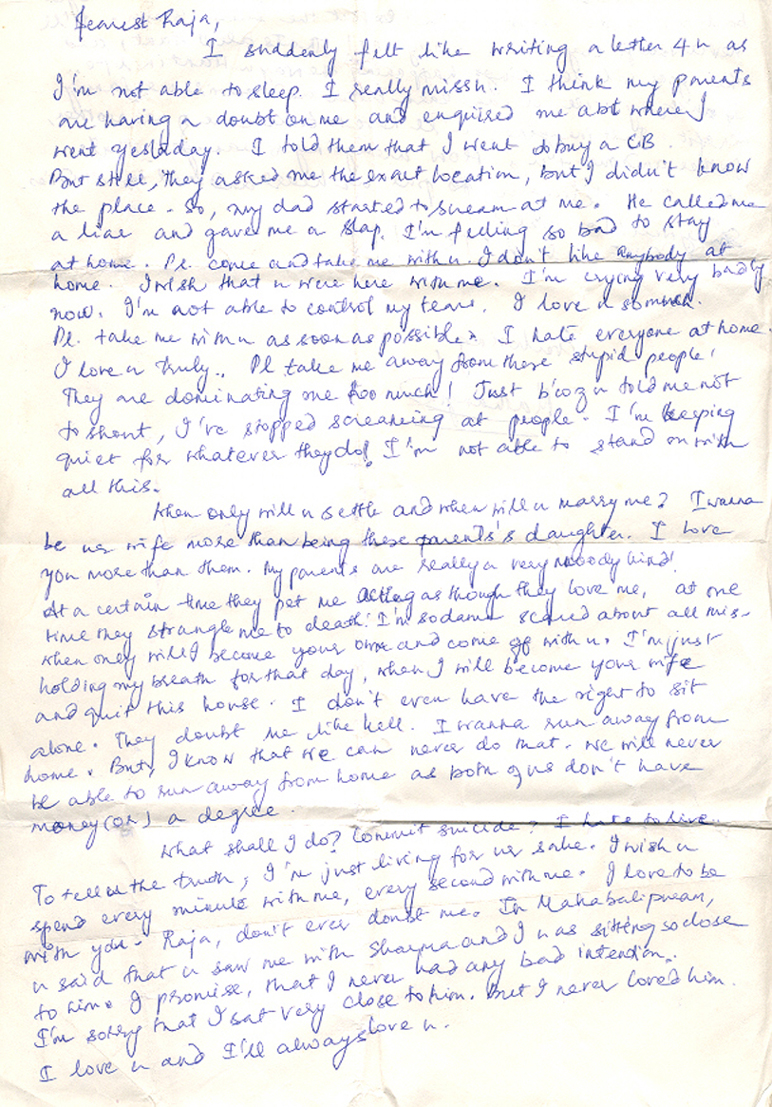 Dearest Raja,
I suddenly felt like writing a letter 4 u as
I'm not able to sleep. I really missu. I think my parents
are having a doubt on me and enquired me abt where I
went yestaday. I told them that I went to buy a CB.
But still, they asked me the exact location, but I didn't know
the place. So, my dad started to scream at me. He called me
a liar and gave me a slap. I'm feeling so bad to stay
at home. Pl. come and take me with u. I don't like anybody at
home. I wish that u were here with me. I'm crying very badly
now. I'm not able to control my tears. I love u so much.
Pl. take me with u as soon as possible. I hate everyone at home.
I love u truly. Pl take me away from these stupid people!
They are dominating me too much! Just b'coz u told me not
to shout, I've stopped screaming at people. I'm keeping
quiet for whatever they do! I'm not able to stand on with
all this.
When only will u settle and when will u marry me? I wanna
be ur wife more than being these parents's daughter. I love
you more than them. My parents are really a very moody kind!
At a certain time they pet me as though they love me, at one
time they strangle me to death! I'm so damn scared about all this.
When only will I become your own and come off with u. I'm just
holding my breath for that day, when I will become your wife
and quit this house. I don't even have the right to sit
alone. They doubt me like hell. I wanna run away from
home. But, I know that we can never do that. We will never
be able to run away from home as both of us don't have
money (or) a degree.
What shall I do? Commit suicide? I hate to live.
To tell u the truth, I'm just living for ur sake. I wish u
spend every minute with me, every second with me. I love to be
with you. Raja, don't ever doubt me. In Mahabalipuram,
u said that u saw me with Sharma and I was sitting so close
to him. I promise, that I never had any bad intention.
I'm sorry that I sat very close to him. But I never loved him.
I love u and I'll always love u.